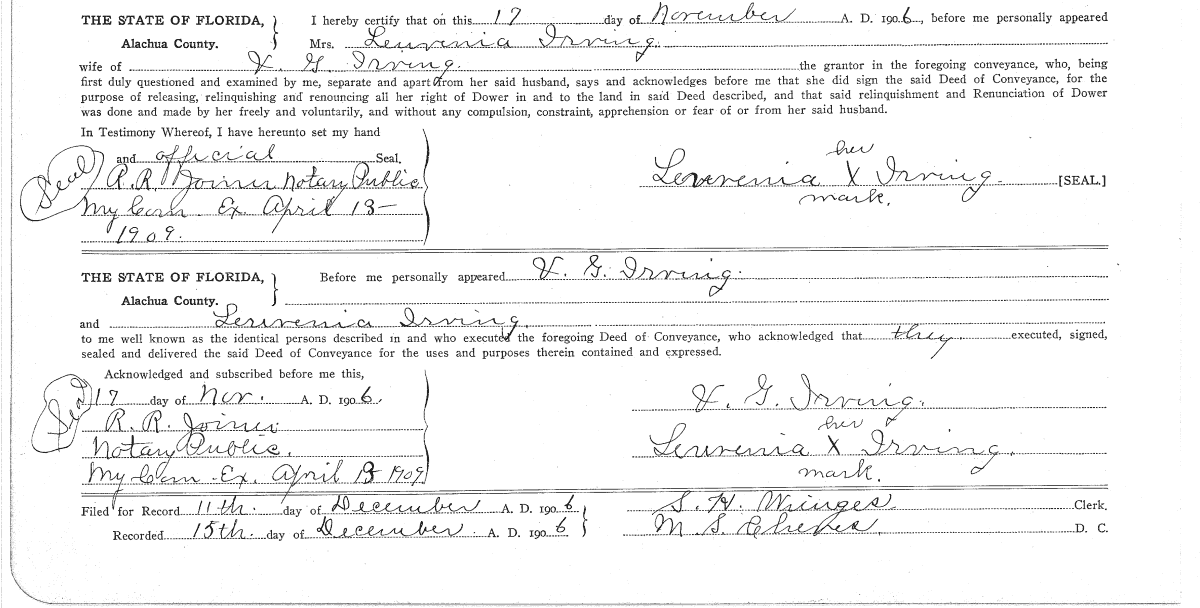 THE STATE OF FLORIDA, I hereby certify that on this 17 day of November A. D. 1906, before me personally appeared
Alachua County. Mrs. Leuvenia Irving
wife of V. G. Irving the grantor in the foregoing conveyance, who, being
first duly questioned and examined by me, separate and apart from her said husband, says and acknowledges before me that she did sign the said Deed of Conveyance, for the
purpose of releasing, relinquishing and renouncing all her right of Dower in and to the land in said Deed described, and that said relinquishment and Renunciation of Dower
was done and made by her freely and voluntarily, and without any compulsion, constraint, apprehension or fear of or from her said husband.
In Testimony Whereof, I have hereunto set my hand
and official Seal.
her
Seal R. R. Joiner Notary Public
Leuvenia X Irving [SEAL.]
mark.
My Com Ex. April 13-
1909.
THE STATE OF FLORIDA, Before me personally appeared V. G. Irving.
Alachua County.
and Leuvenia Irving
to me well known as the identical persons described in and who executed the foregoing Deed of Conveyance, who acknowledged that they executed, signed,
sealed and delivered the said Deed of Conveyance for the uses and purposes therein contained and expressed.
Acknowledged and subscribed before me this,
Seal 17 day of Nov. A. D. 1906.
V. G. Irving.
R. R. Joiner
her
Notary Public.
Leuvenia X Irving.
My Com Ex. April 13 1909
mark.
Filed for Record 11th. day of December A. D. 1906 S. H. Wienges Clerk.
Recorded 15th. day of December A. D. 1906 M. S. Cheves D. C.